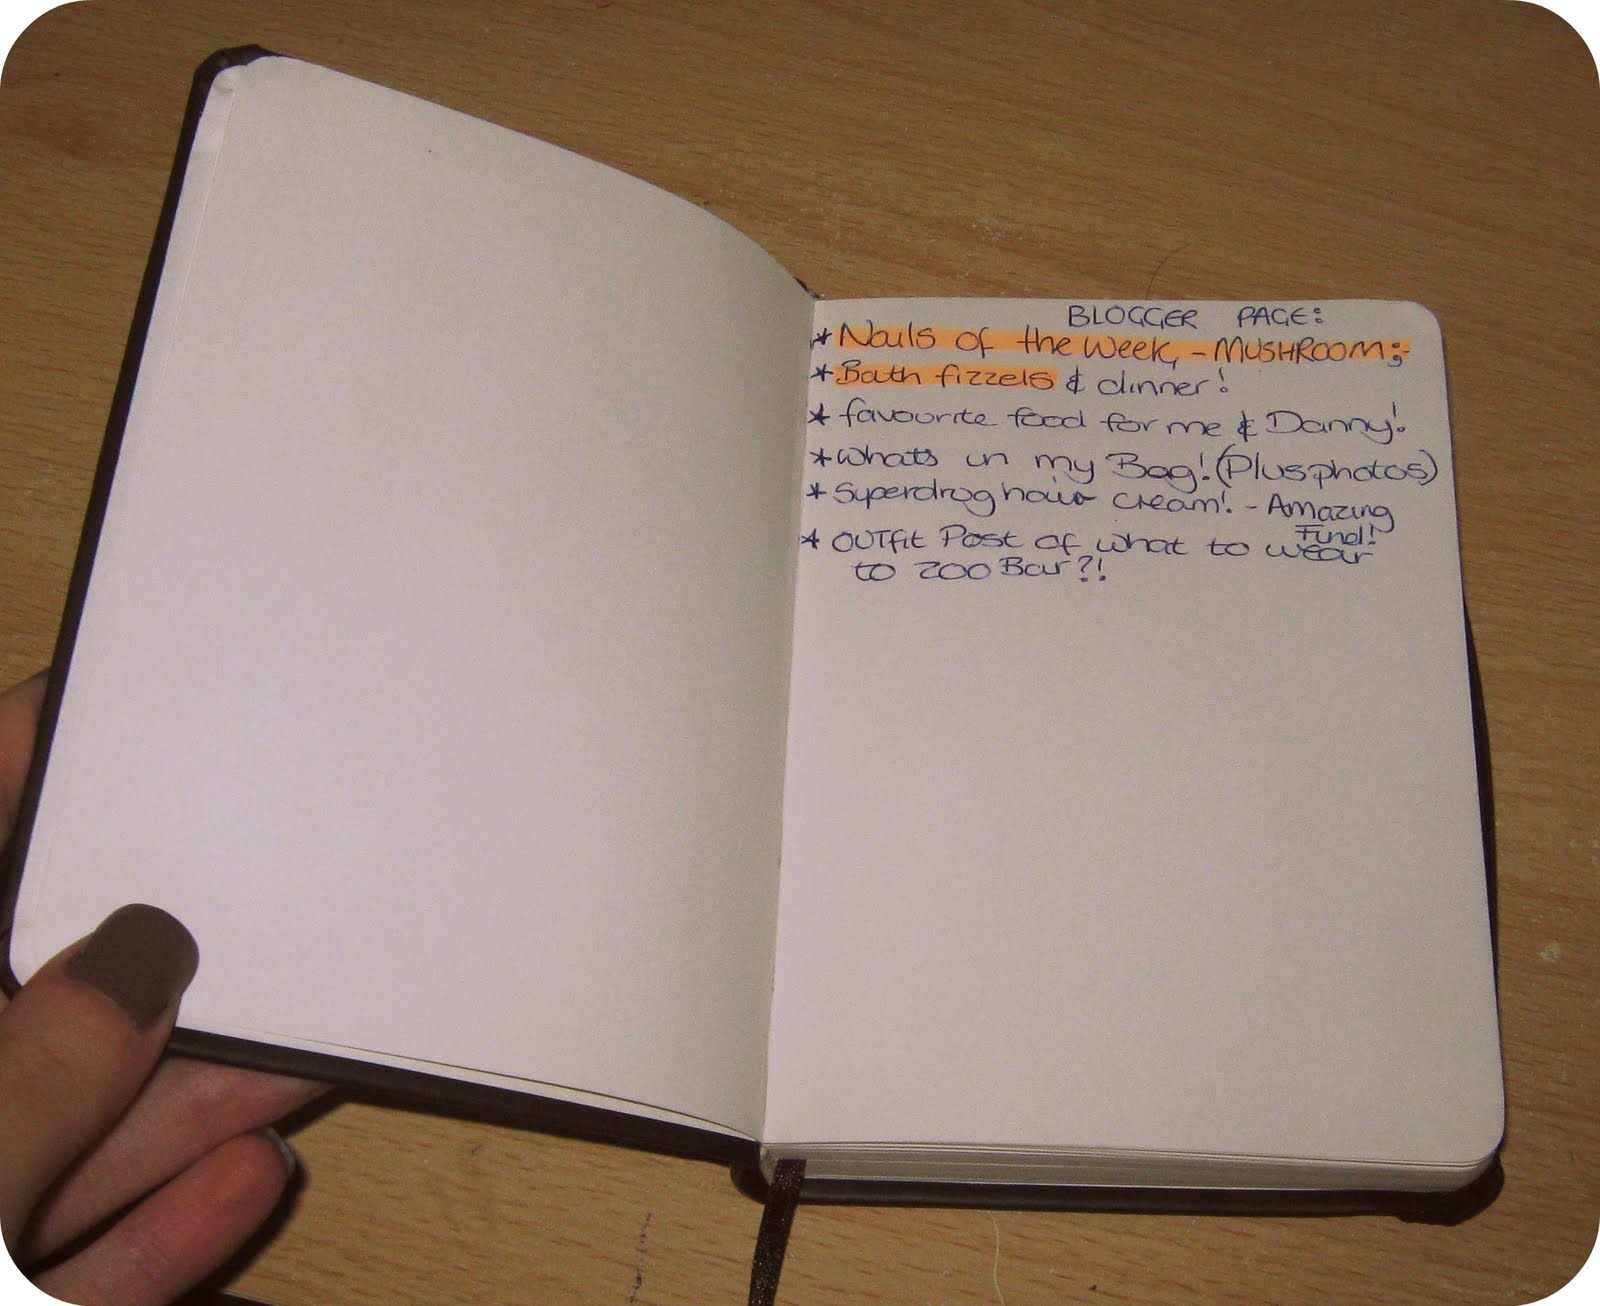 BLOGGER PAGE:
* Nails of the week, - MUSHROOM;-
* Bath fizzels & dinner!
* favourite food for me & Danny!
* whats in my Bag! (Plus photos)
* Superdrug hair cream! - Amazing Find!
* OUTfit Post of what to wear
to ZOO Bar?!